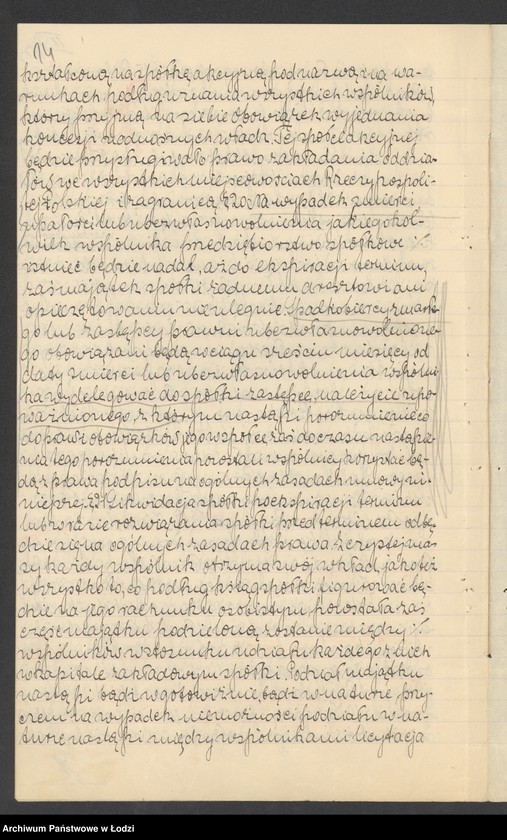 14
kształconą na spółkę akcyjną pod nazwą i na wa-
runkach podług uznania wszystkich wspólników,
którzy przyjmą na siebie obowiązek wyjednania
koncesji z odnośnych władz. Tej spółce akcyjnej
będzie przysługiwało prawo zakładania oddzia-
łów we wszystkich miejscowościach Rzeczypospoli-
tej Polskiej i zagranicą. § 20. Na wypadek śmierci
upadłości lub ubezwłasnowolnienia jakiegokol-
wiek wspólnika przedsiębiorstwo spółkowe
istnieć będzie nadal, aż do ekspiracji terminu,
zaś majątek spółki żadnemu aresztowi ani
opieczętowaniu nie ulegnie. Spadkobiercy zmarłe-
go lub zastępcy prawni ubezwłasnowolnione-
go obowiązani będą w ciągu sześciu miesięcy od
daty śmierci lub ubezwłasnowolnienia wspólni-
ka wydelegować do spółki zastępcę, należycie upo-
ważnionego, z którym nastąpi porozumienie co
do praw i obowiązków jego w spółce, zaś do czasu nastąpie-
nia tego porozumienia pozostali wspólnicy korzystać bę-
dą z prawa podpisu na ogólnych zasadach umowy ni-
niejszej. § 21. Likwidacja spółki po ekspiracji terminu
lub w razie rozwiązania spółki przed terminem odbę-
dzie się na ogólnych zasadach prawa. Z czystej ma-
sy każdy wspólnik otrzyma swój wkład, jako też
wszystko to, co podług ksiąg spółki figurować bę-
dzie na jego rachunku osobistym, pozostała zaś
część majątku podzieloną zostanie między
wspólników w stosunku udziału każdego z nich
w kapitale zakładowym spółki. Podział majątku
nastąpi bądź w gotowiźnie, bądź w naturze przy-
czem na wypadek niemożności podziału w na-
turze nastąpi między wspólnikami licytacja
Archiwum Państwowe w Łodzi